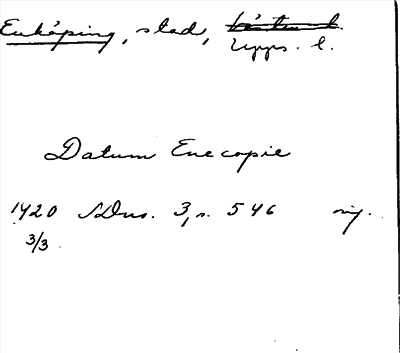 Enköping, stad,
Upps. l.
Datum Enecopie
1420 SDns. 3, s. 546 orig.
3/3